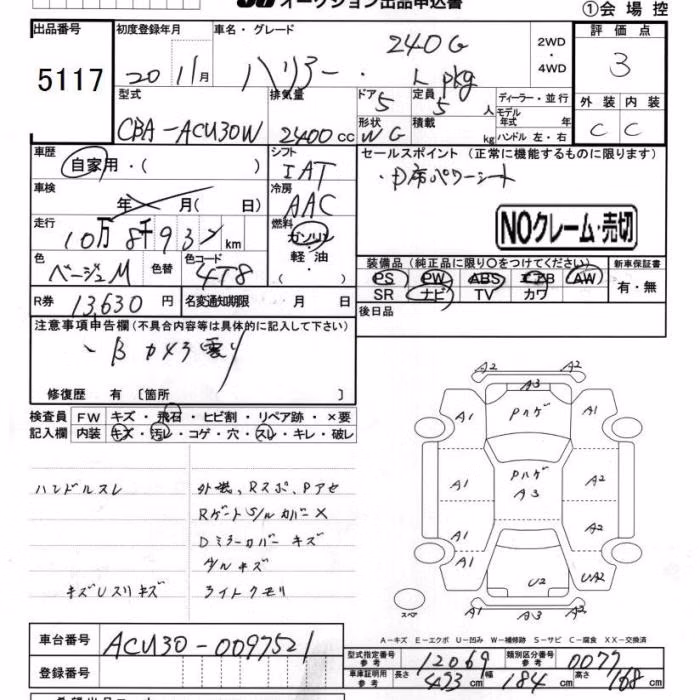 オークション出品申込書
①会場控
出品番号
5117
初度登録年月
20 11月
車名・グレード
ハリアー・ 240G
L pkg
2WD
・
4WD
評価点
3
型式
CBA-ACU30W
排気量
2400cc
ドア 5
定員 5人
形状 WG
積載 kg
ディーラー・並行
モデル年式 年
ハンドル 左・右
外装 内装
C C
車歴
自家用・( )
シフト
IAT
セールスポイント (正常に機能するものに限ります)
・D席パワーシート
車検
年 月( 日)
冷房
AAC
NOクレーム・売切
走行
10万8千93 km
燃料
ガソリン
軽・油
( )
色
ベージュM
色替
色コード
4T8
装備品(純正品に限り○をつけてください)
新車保証書
PS PW ABS エアB AW
SR ナビ TV カワ
有・無
R券 13,630円
名変通知期限 月 日
後日品
注意事項申告欄(不具合内容等は具体的に記入して下さい)
修復歴 有 [箇所 ]
検査員
記入欄
FW キズ・飛石・ヒビ割・リペア跡・×要
内装 キズ・汚レ・コゲ・穴・スレ・キレ・破レ
ハンドルスレ
Dミラーカバーキズ
キズUスリキズ
ライトクモリ
A2 A2
A3
A1 Pハゲ A1
A1 Pハゲ A2
A3
A1 A2
A1 U2 UA2
A1 A3 A3
スペア
A-キズ E-エクボ U-凹み W-補修跡 S-サビ C-腐食 XX-交換済
車台番号
ACU30-0097521
登録番号
型式指定番号 参考 12069
類別区分番号 参考 0077
車庫証明用 参考 長さ 473cm 幅 184cm 高さ 168cm